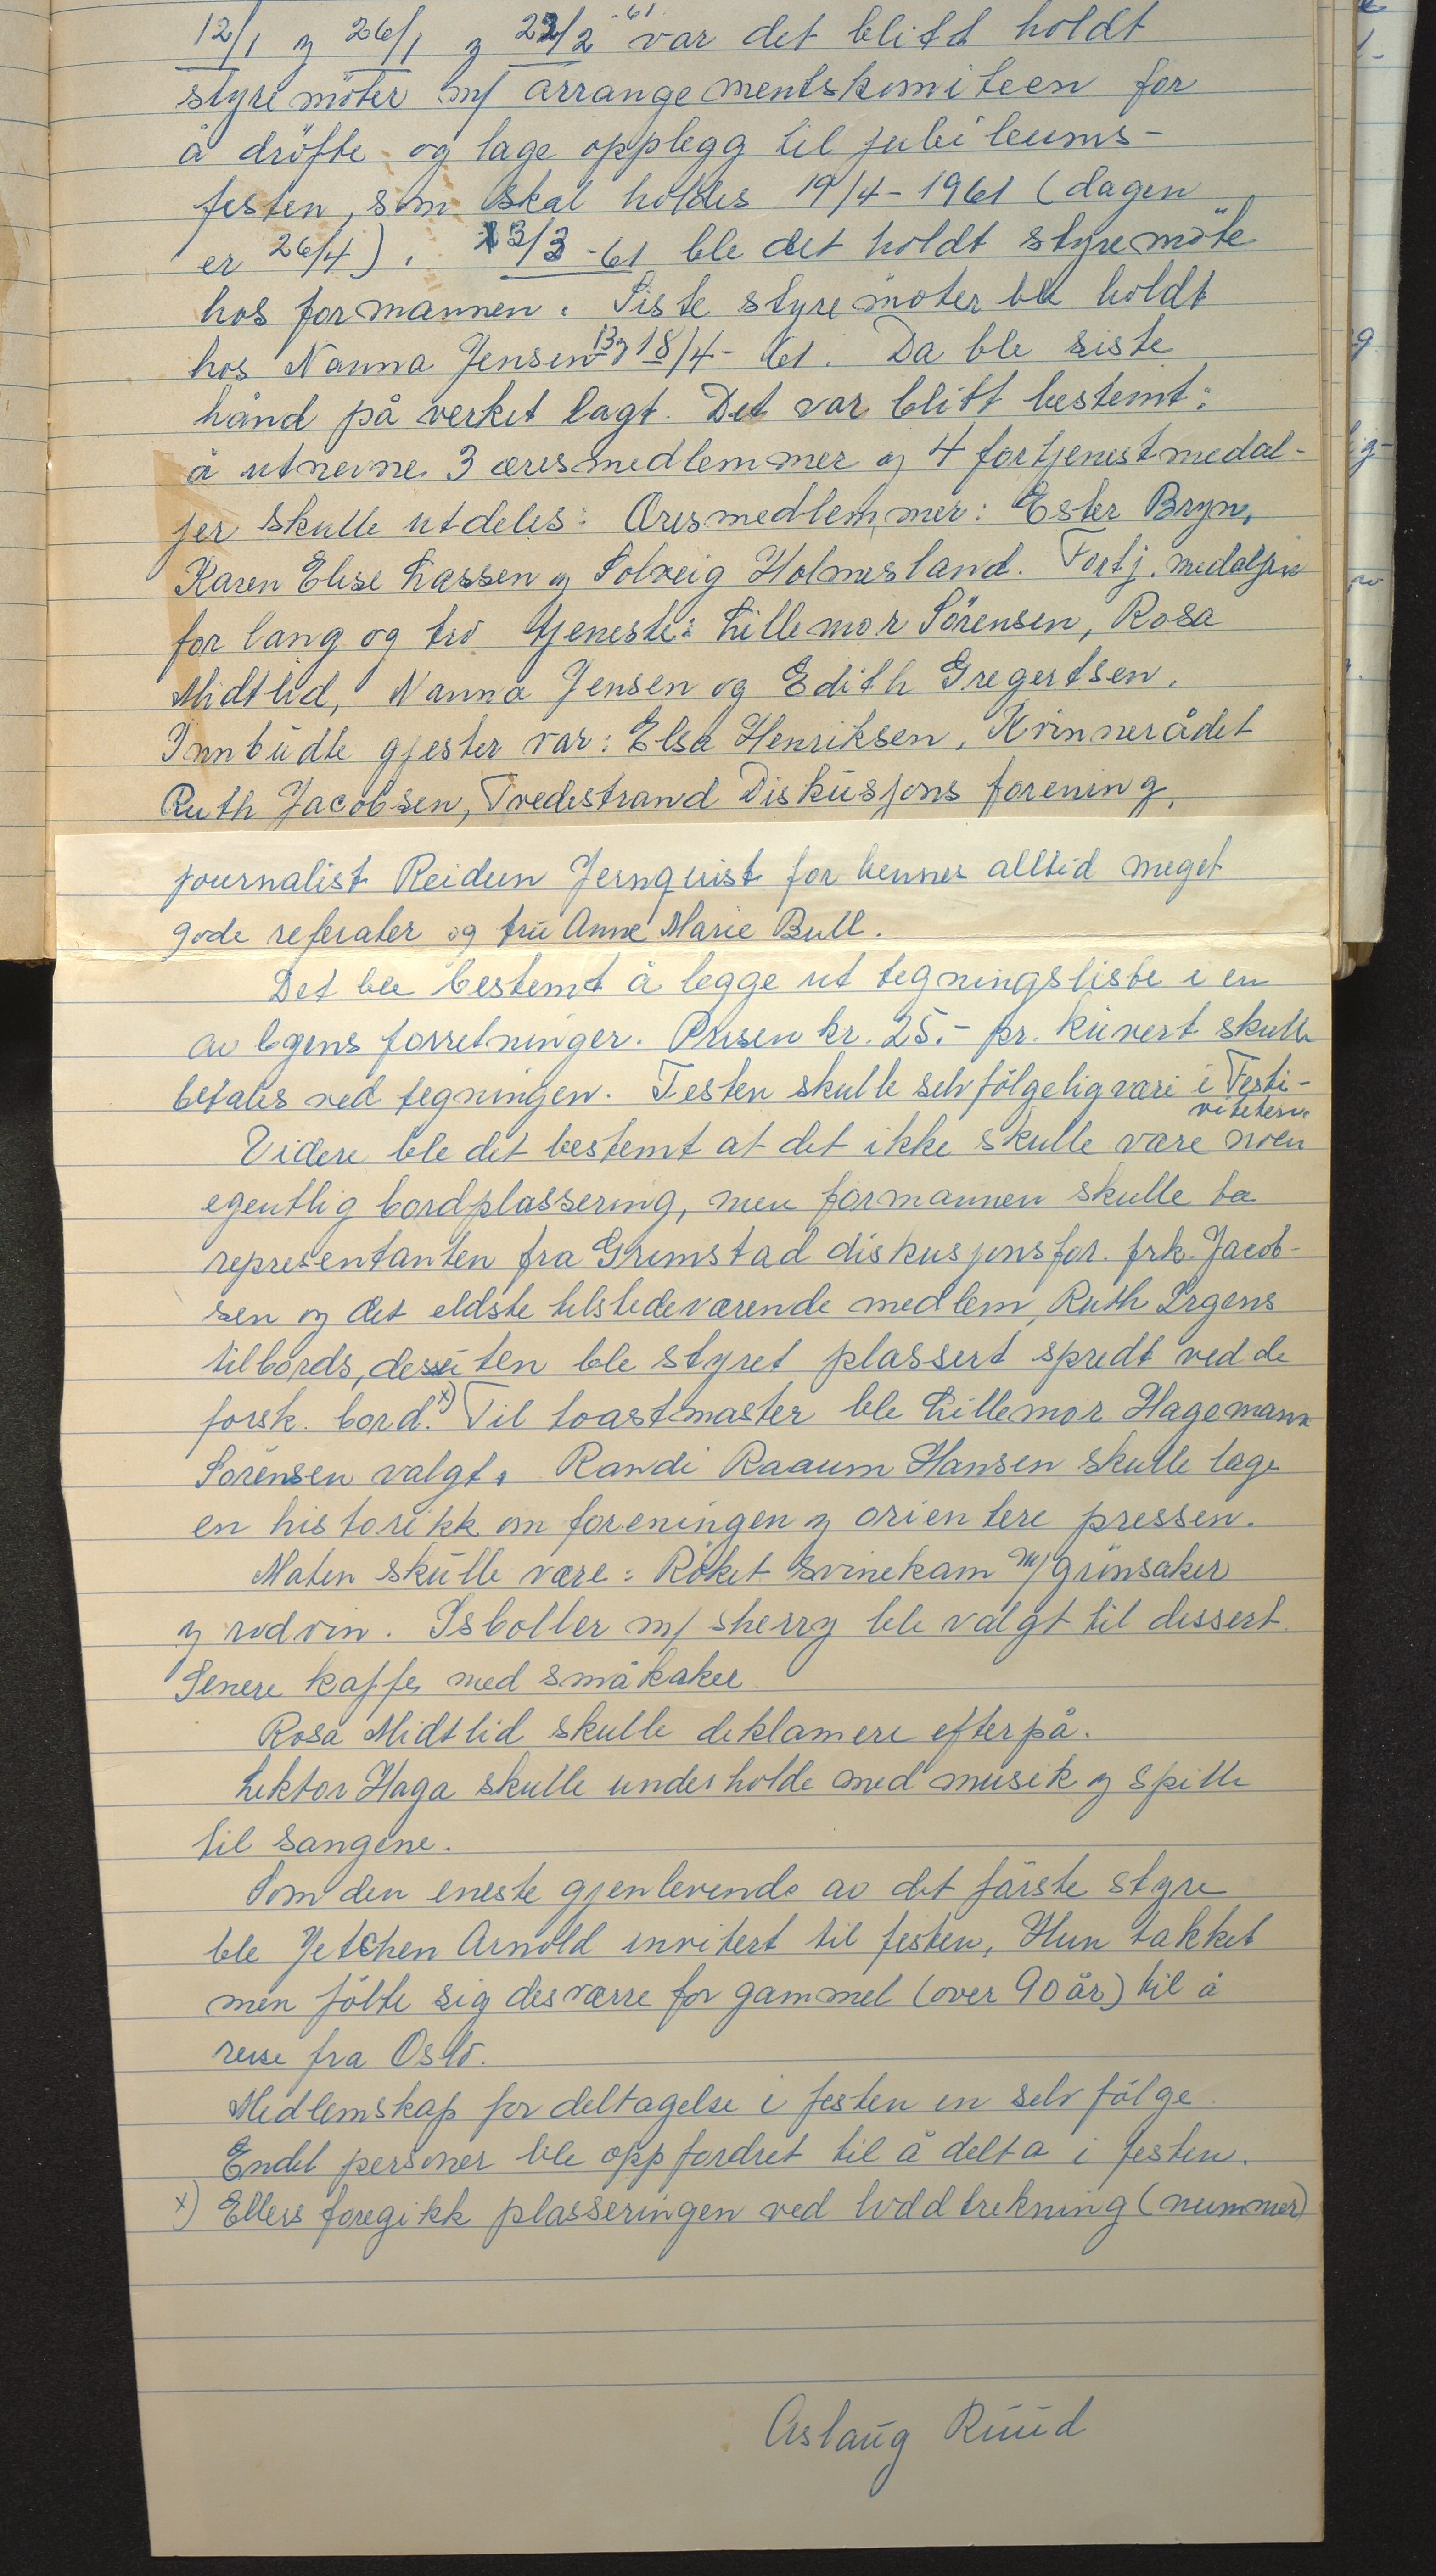 12/1 og 26/1 og 22/2 -61 var det blitt holdt
styremöter m/ arrangementskomiteen for
å dröfte og lage opplegg til jubileums-
festen, som skal holdes 19/4-1961 (dagen
er 26/4). 23/3 -61 ble det holdt styremöte
hos formannen. Siste styremöter ble holdt
hos Nanna Jensen 13 og 18/4-61. Da ble siste
hånd på verket lagt. Det var blitt bestemt:
å utnevne 3 æresmedlemmer og 4 fortjenestmedal-
jer skulle utdeles: Æresmedlemmer: Ester Bryn,
Karen Elise Lassen og Solveig Holmesland. Fortj. medaljen
for lang og tro tjeneste: Lillemor Sörensen, Rosa
Midtlid, Nanna Jensen og Edith Gregertsen.
Innbudte gjester var: Elsa Henriksen, Kvinnerådet
Ruth Jacobsen, Tvedestrand Diskusjons forening,
journalist Reidun Jernquist for hennes alltid meget
gode referater og fru Anne Marie Bull.
Det ble bestemt å legge ut tegningsliste i en
av byens forretninger. Prisen kr. 25.- pr. kuvert skulle
betales ved tegningen. Festen skulle selvfölgelig være i Festi-
viteten.
Videre ble det bestemt at det ikke skulle være noen
egentlig bordplassering, men formannen skulle ta
representanten fra Grimstad diskusjonsfor. frk. Jacob-
sen og det eldste tilstedeværende medlem, Ruth Irgens
tilbords, dessuten ble styret plassert spredt ved de
forsk. bord. x) Til toastmaster ble Lillemor Hagemann
Sörensen valgt. Randi Raaum Hansen skulle lage
en historikk om foreningen og orientere pressen.
Maten skulle være: Röket svinekam m/ grönsaker
og rödvin. Isboller m/ sherry ble valgt til dessert.
Senere kaffe med småkaker
Rosa Midtlid skulle deklamere efterpå.
Lektor Haga skulle underholde med musik og spille
til sangene.
Som den eneste gjenlevende av det förste styre
ble Jetchen Arnold invitert til festen, Hun takket
men fölte sig desværre for gammel (over 90 år) til å
reise fra Oslo.
Medlemskap for deltagelse i festen en selvfölge
Endel personer ble oppfordret til å delta i festen.
x) Ellers foregikk plasseringen ved loddtrekning (nummer)
Aslaug Ruud